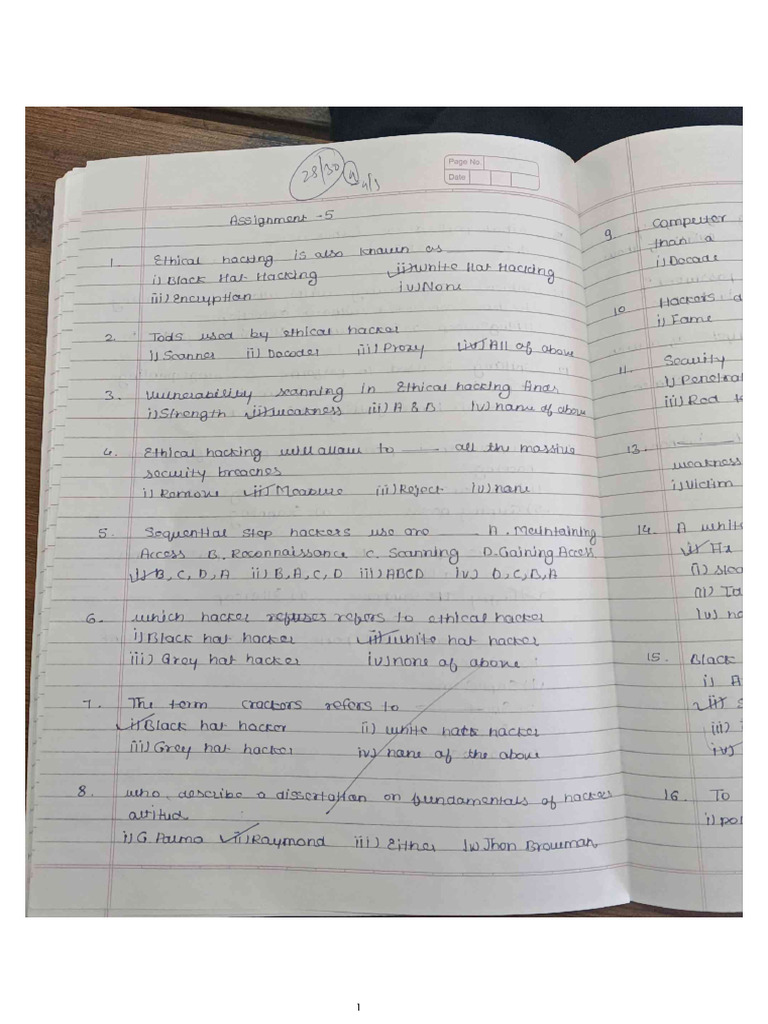 28/30
Page No.
Date
Assignment -5
1. Ethical hacking is also known as
i) Black Hat Hacking ii) White Hat Hacking
iii) Encryption iv) None
2. Tools used by ethical hacker
i) Scanner ii) Decoder iii) Proxy iv) All of above
3. Vulnerability scanning in Ethical hacking finds
i) Strength ii) weakness iii) A & B iv) none of above
4. Ethical hacking will allow to ____ all the massive
security breaches
i) Remove ii) Measure iii) Reject iv) none
5. Sequential step hackers use are ____. A. Maintaining
Access B. Reconnaissance C. Scanning D. Gaining Access
i) B, C, D, A ii) B, A, C, D iii) ABCD iv) D, C, B, A
6. which hacker refuses refers to ethical hacker
i) Black hat hacker ii) white hat hacker
iii) Grey hat hacker iv) none of above
7. The term crackers refers to
i) Black hat hacker ii) white hats hacker
iii) Grey hat hacker iv) none of the above
8. who describe a dissertation on fundamentals of hacker
attitud
i) G. Palma ii) Raymond iii) Either iv) Jhon Browman
9. Computer
than a
i) Decode
10 Hackers
i) Fame
11. Security
i) Penetrat
iii) Red te
13.
weakness
i) Victim
14. A white
(iv) no
15. Black
i) A
16. To
1